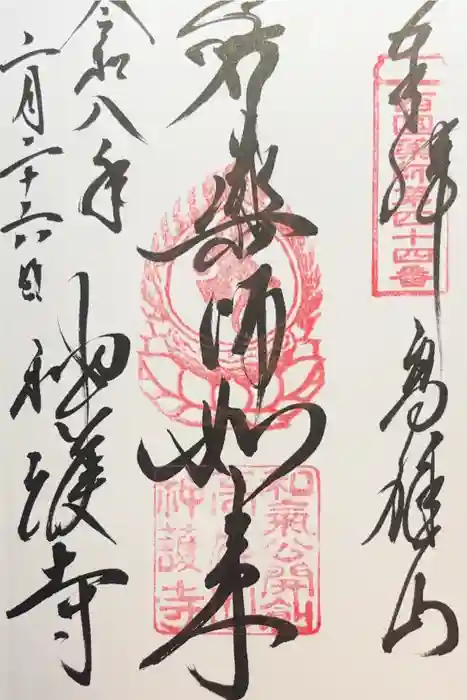 奉拝 高雄山
西國薬師第四十四番
薬師如来
和氣公開創
高雄山
神護寺
令和八年
二月二十六日
神護寺